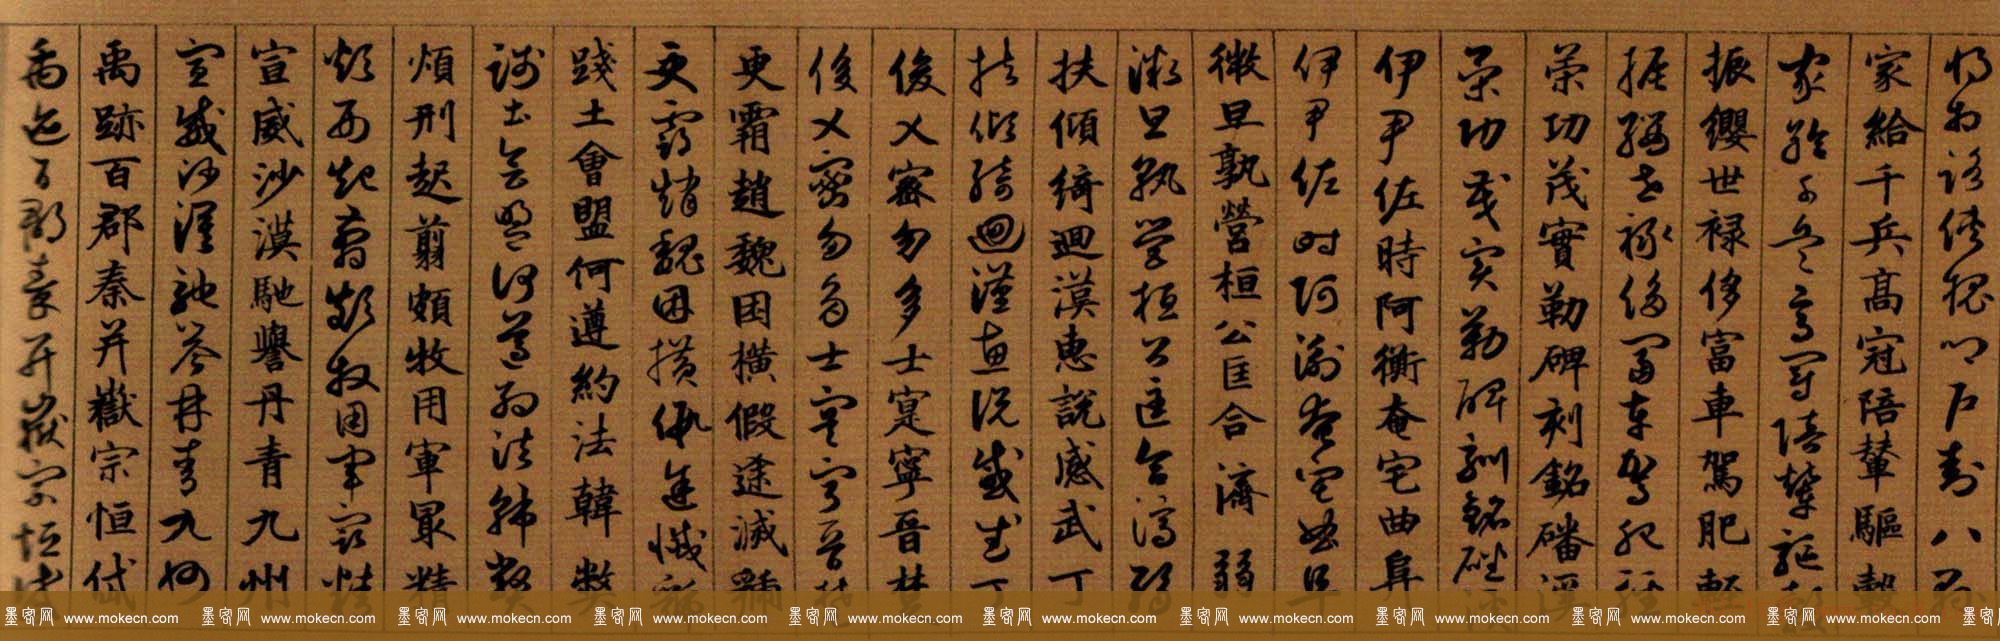 將相路俠槐卿戶封八
家給千兵高冠陪輦驅轂
家給千兵高冠陪輦驅轂
振纓世祿侈富車駕肥輕
振纓世祿侈富車駕肥輕
策功茂實勒碑刻銘磻溪
策功茂實勒碑刻銘磻溪
伊尹佐時阿衡奄宅曲阜
伊尹佐時阿衡奄宅曲阜
微旦孰營桓公匡合濟弱
微旦孰營桓公匡合濟弱
扶傾綺迴漢惠說感武丁
扶傾綺迴漢惠說感武丁
俊乂密勿多士寔寧晉楚
俊乂密勿多士寔寧晉楚
更霸趙魏困橫假途滅虢
更霸趙魏困橫假途滅虢
踐土會盟何遵約法韓弊
踐土會盟何遵約法韓弊
煩刑起翦頗牧用軍最精
煩刑起翦頗牧用軍最精
宣威沙漠馳譽丹青九州
宣威沙漠馳譽丹青九州
禹跡百郡秦并嶽宗恒岱
禹跡百郡秦并嶽宗恒岱
墨客网 www.mokecn.com 墨客网 www.mokecn.com 墨客网 www.mokecn.com 墨客网 www.mokecn.com 墨客网 www.mokecn.com 墨客网 www.mokecn.com 墨客网 www.mokecn.com 墨客网 www.mokecn.com 墨客网 www.mokecn.com 墨客网 www.mokecn.com 墨客网